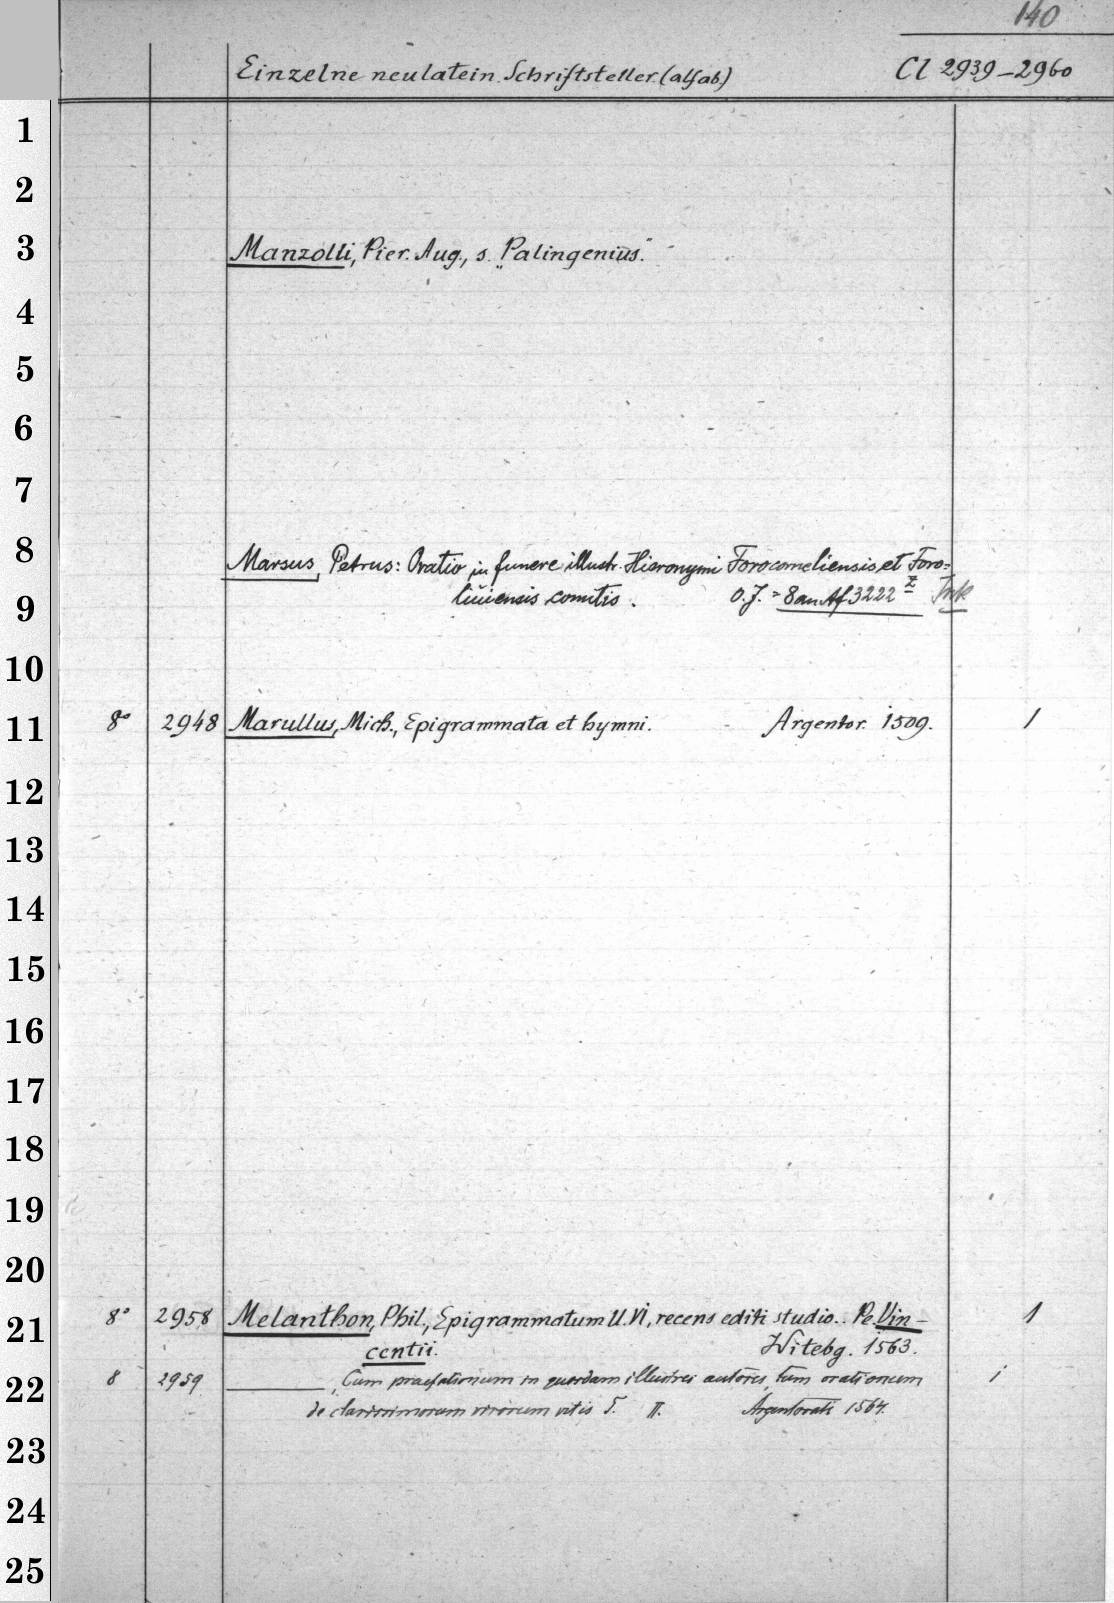 140
Einzelne neulatein. Schriftsteller (alfab) Cl 2939-2960
1
2
3 Manzolli, Pier. Aug., s. „Palingenius.“
4
5
6
7
8 Marsus, Petrus: Oratio in funere illustr. Hieronymi Forocorneliensis et Foro=
9 liviensis comitis. O. J. = 8 an Af 3222 Ink
10
11 8° 2948 Marullus, Mich., Epigrammata et hymni. Argentor. 1509. 1
12
13
14
15
16
17
18
19
20
21 8° 2958 Melanthon, Phil., Epigrammatum ll. VI, recens editi studio.. Pe. Vin-
centii. Witebg. 1563. 1
22 8 2959 ———, Cum praefationum in quosdam illustres autores, tum orationum
de clarissimorum virorum vitis T. II. Argentorati 1564. 1
23
24
25